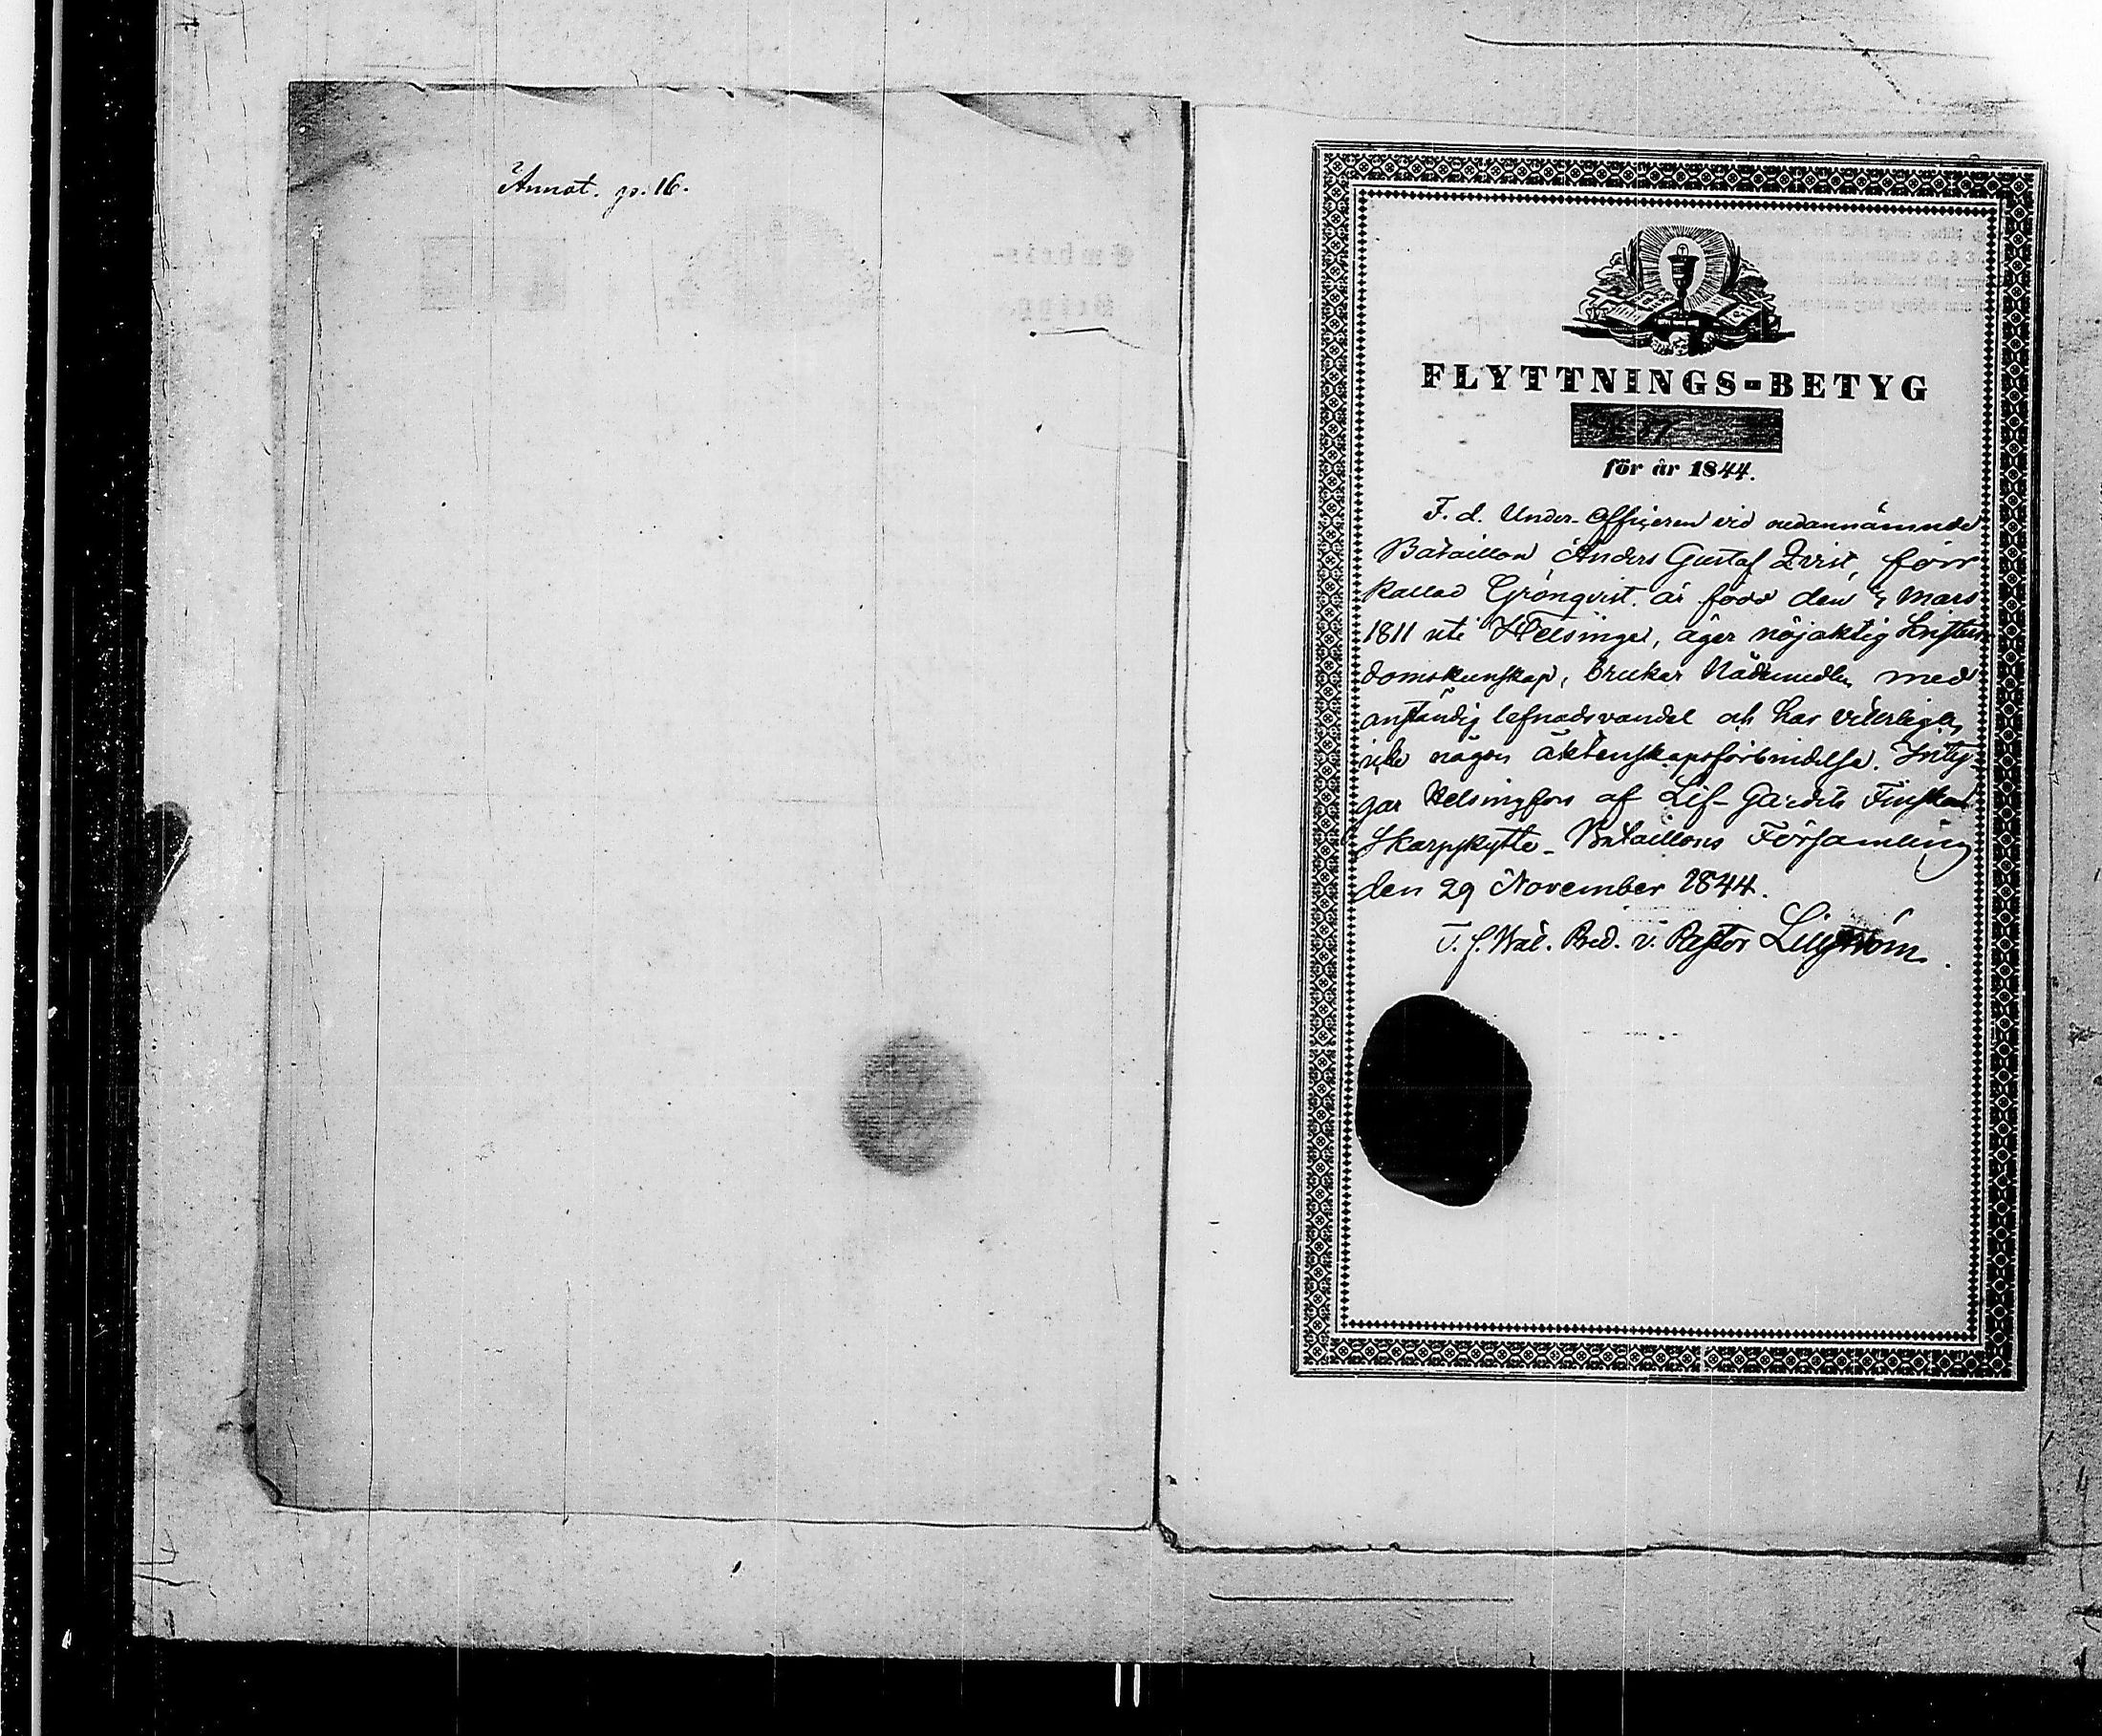 Annot. p. 16.
FLYTTNINGS-BETYG
för år 1844.
F. d. Under-Officeren vid nedannämnde
Bataillon Anders Gustaf Qvist, förr
kallad Grönqvist. är född den Mars
1811 uti Helsinge, äger nöjaktig kristen-
domskunskap, brukar Nådemedlen med
anständig lefnadsvandel och har veterligen
icke någon äktenskapsförbindelse. Inty-
gar Helsingfors af Lif-Gardets Finska
Skarpskytte-Bataillons Församling
den 29 November 1844.
T. f. Bat. Pred. v. Pastor